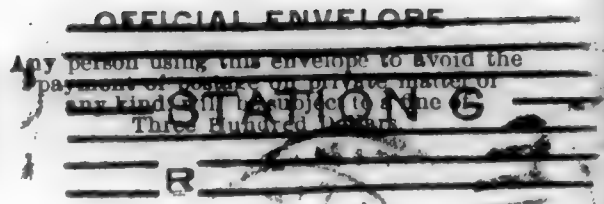 OFFICIAL ENVELOPE
Any person using this envelope to avoid the
payment of postage on private matter of
any kind will be subject to a fine of
STATION G
Three Hundred Dollars
R